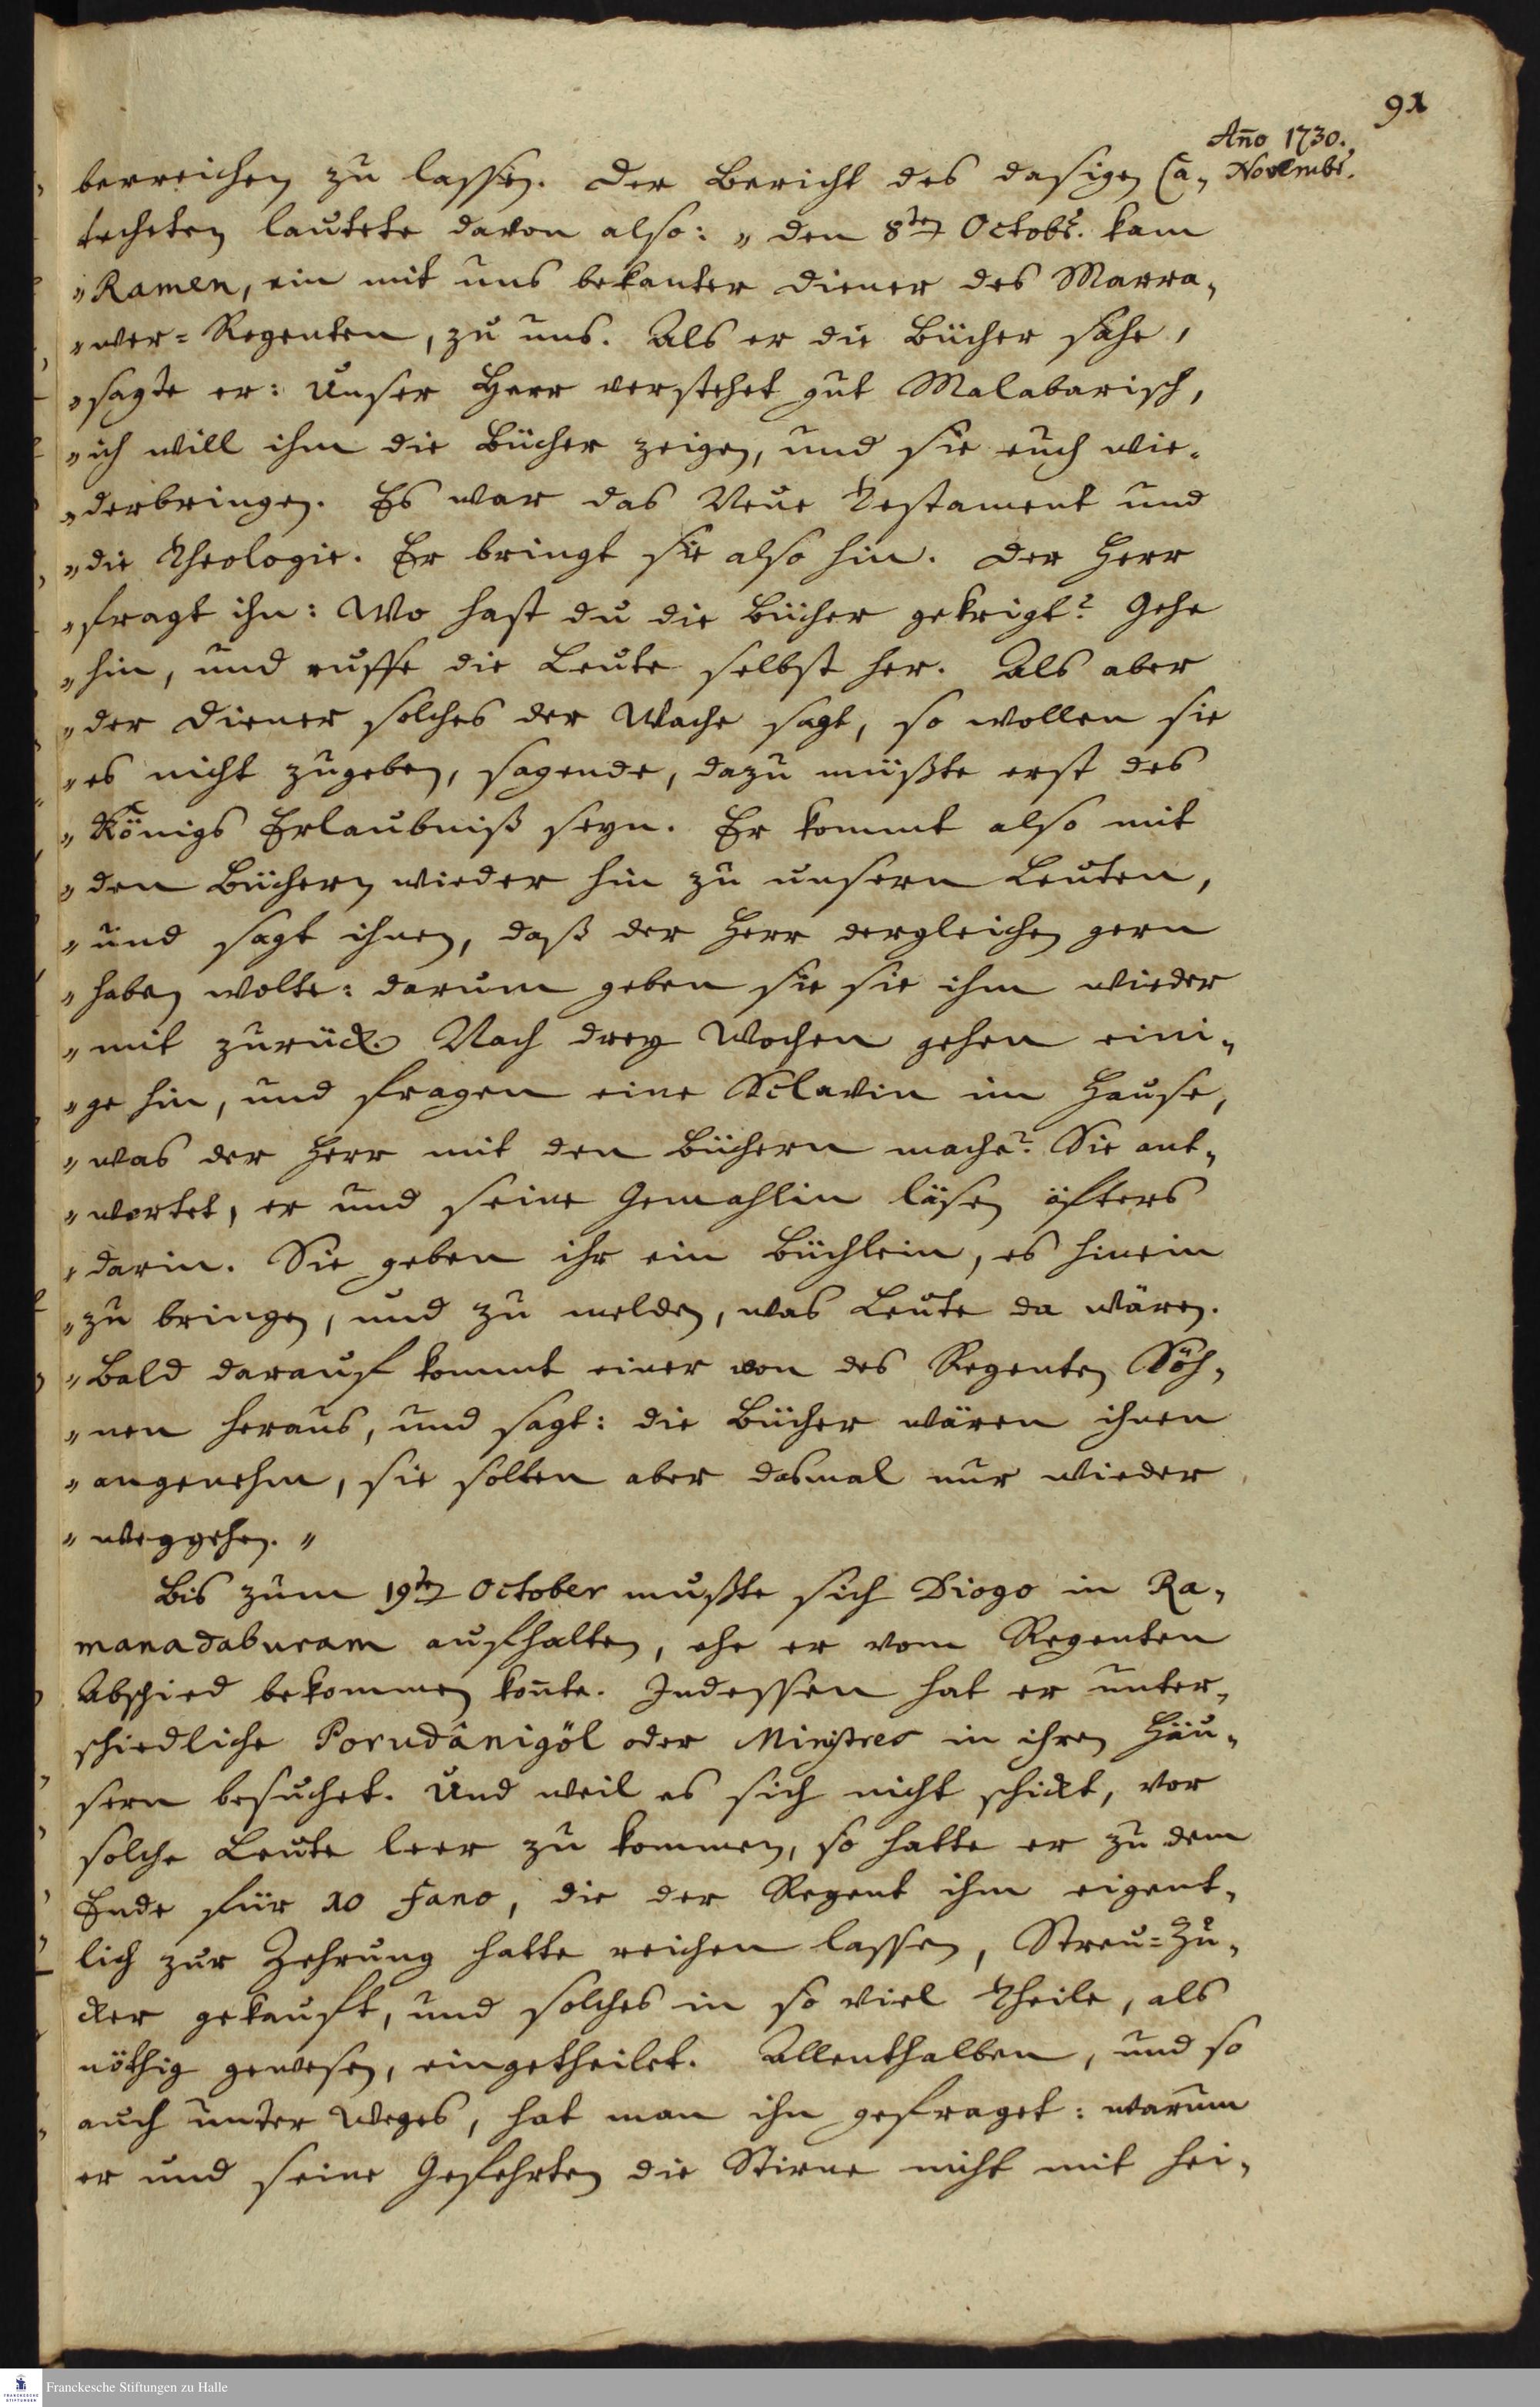 91
Año 1730.
Novembr.
berreichen zu lassen. Der Bericht des dasigen Ca„
techeten lautete davon also: „ den 8ten Octobr. kam
„Ramen, ein mit uns bekanter Diener des Marra„
„wer=Regenten, zu uns. Als er die Bücher sahe,
„sagte er: Unser Herr verstehet gut Malabarisch,
„ich will ihm die Bücher zeigen, und sie euch wie„
„derbringen. Es war das Neue Testament und
„die Theologie. Er bringt sie also hin. Der Herr
„fragt ihn: Wo hast du die Bücher gekrigt? Gehe
„hin, und ruffe die Leute selbst her. Als aber
„der Diener solches der Wache sagt, so wollen sie
„es nicht zugeben, sagende, dazu müßte erst des
„Königs Erlaubniß seyn. Er kommt also mit
„den Büchern wieder hin zu unsern Leuten,
„und sagt ihnen, daß der Herr dergleichen gern
„haben wolte: darum geben sie sie ihm wieder
„mit zurück. Nach drey Wochen gehen eini„
„ge hin, und fragen eine Sclavin im Hause,
„was der Herr mit den Büchern mache? Sie ant„
„wortet, er und seine Gemahlin läsen öfters
„darin. Sie geben ihr ein Büchlein, es hinein
„zu bringen, und zu melden, was Leute da wären.
„Bald darauf kommt einer von des Regenten Söh„
„nen heraus, und sagt: die Bücher wären ihnen
„angenehm, sie solten aber dasmal nur wieder
„weggehen. „
Bis zum 19ten October mußte sich Diogo in Ra„
manadaburam aufhalten, ehe er vom Regenten
Abschied bekommen kon̄te. Indessen hat er unter„
schiedliche Porudânigöl oder Ministres in ihren Häu„
sern besuchet. Und weil es sich nicht schickt, vor
solche Leute leer zu kommen, so hatte er zu dem
Ende für 10 Fano, die der Regent ihm eigent„
lich zur Zehrung hatte reichen lassen, Streu=Zu„
cker gekauft, und solches in so viel Theile, als
nöthig gewesen, eingetheilet. Allenthalben, und so
auch unter Weges, hat man ihn gefraget: warum
er und seine Gefehrten die Stirne nicht mit hei„
Franckesche Stiftungen zu Halle